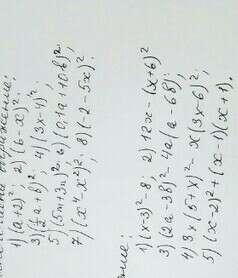 выражение:
1) (a+2)²; 2) (b-x)²;
3) (½a+b)²; 4) (3x-4)²;
5) (5m+3n)²; 6) (0,1a+10b)²;
7) (x⁴-x²)²; 8) (-2-5x)²
1) (x-3)²-8; 2) 12x-(x+6)²
3) (2a-3b)²-4a(a-6b);
4) 3x(5+x)²-x(3x-6)²;
5) (x-2)²+(x-1)(x+1).